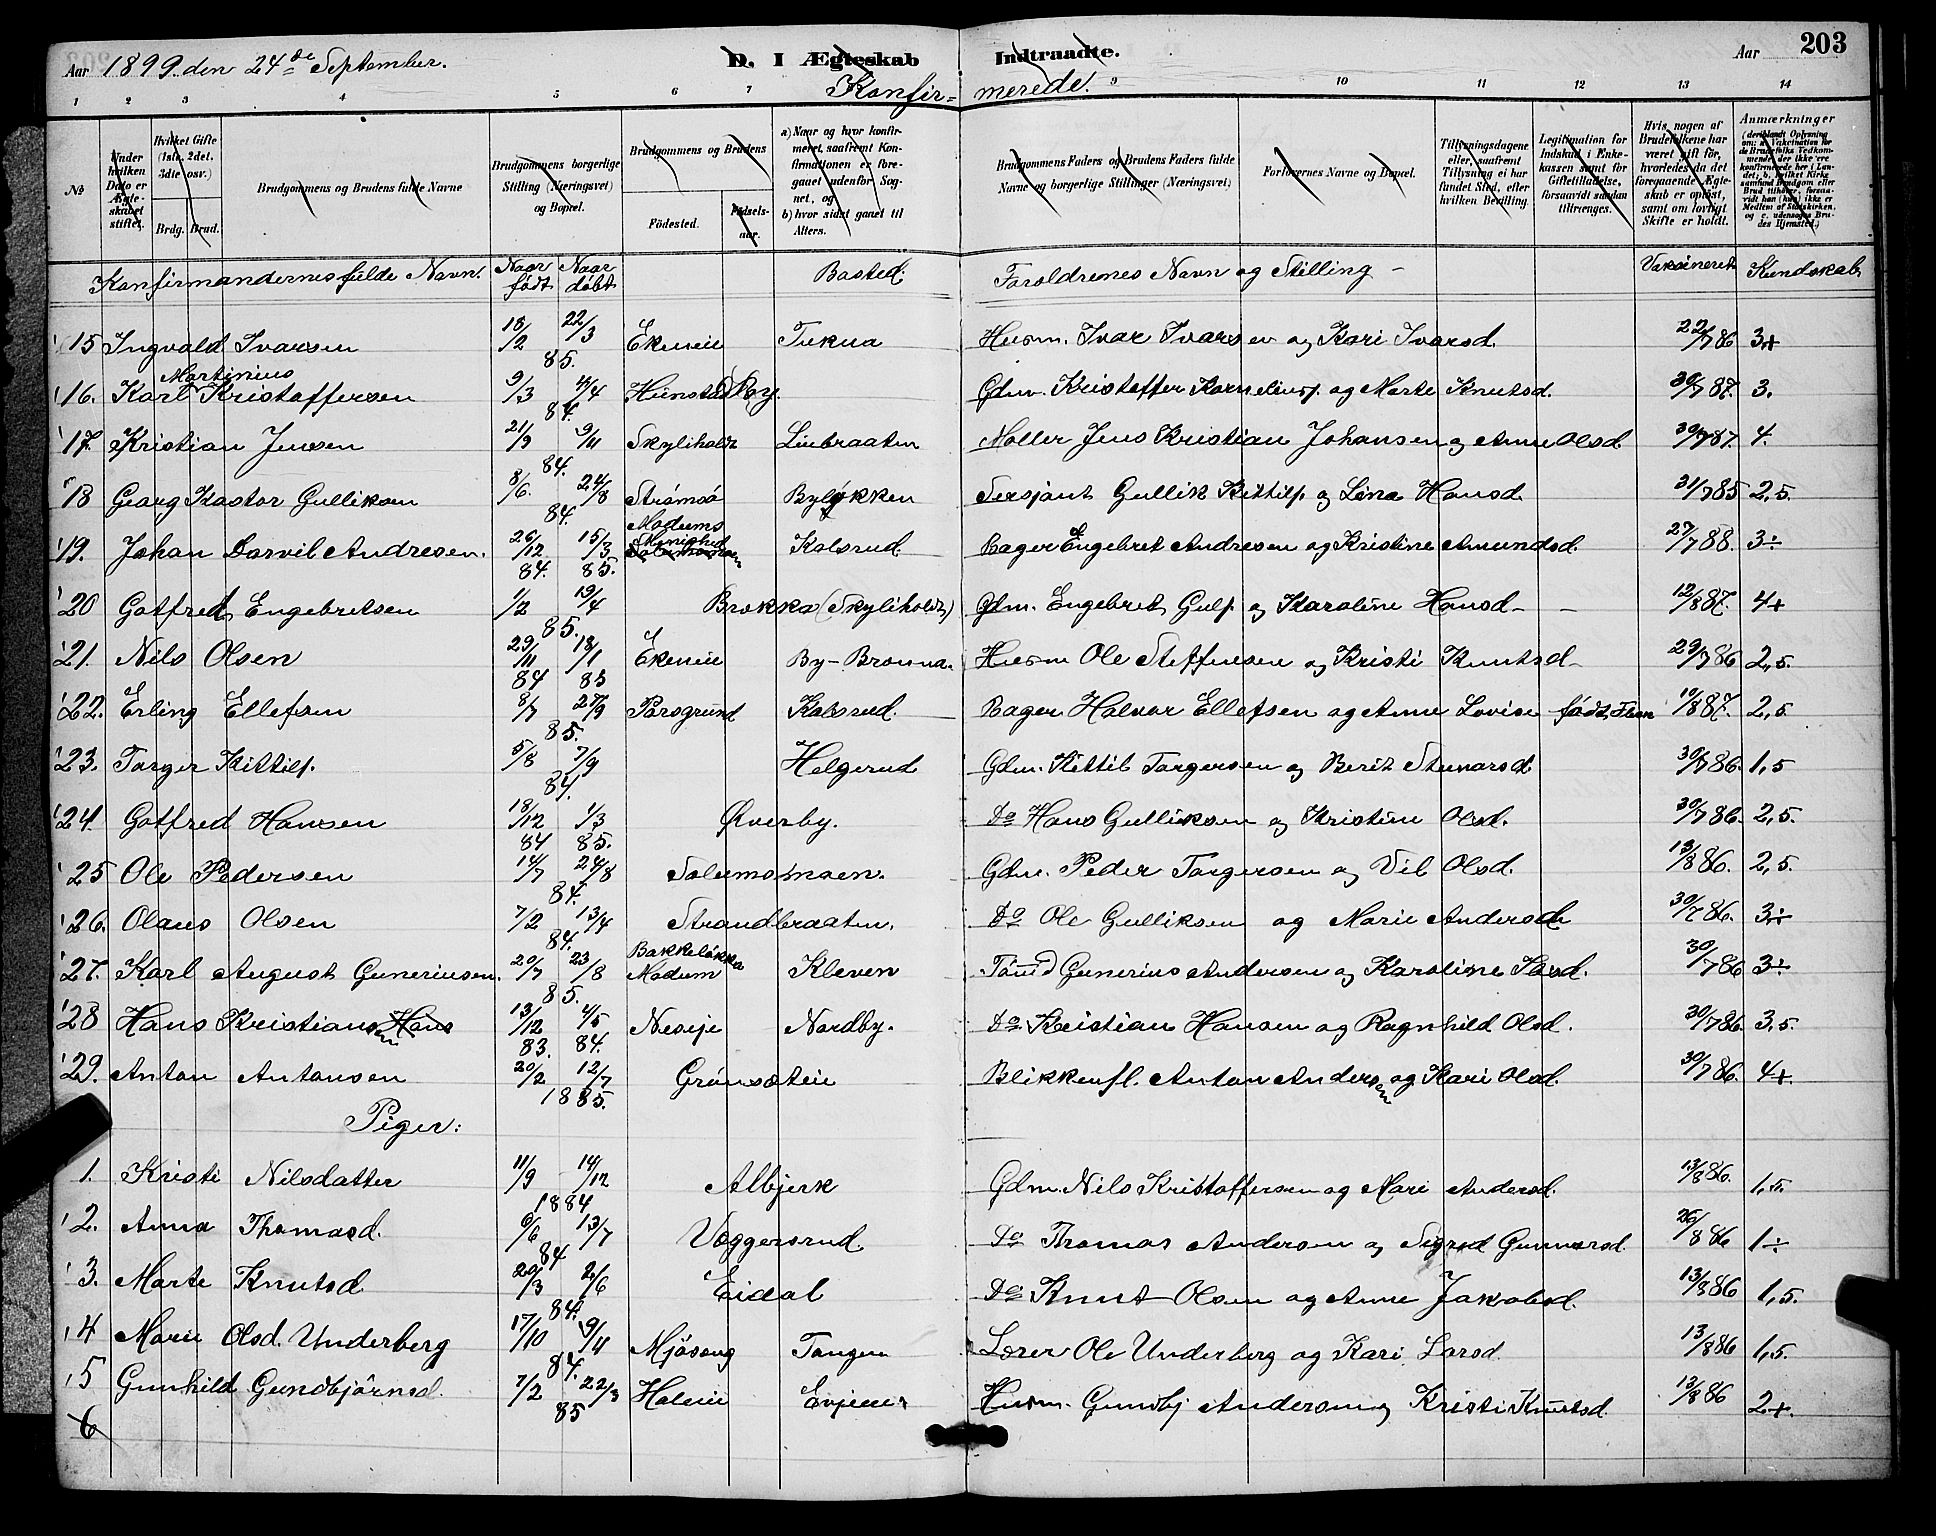 Aar 1899. den 24de September.
D. I Ægteskab Indtraadte.
Aar 203
Konfirmerede.
1 2 3 4 5 6 7 9 10 11 12 13 14
No
Under hvilken Dato er Ægteskabet stiftet.
Hvilket Gifte (1ste, 2det, 3die osv.)
Brdg. Brud.
Brudgommens og Brudens fulde Navne
Brudgommens borgerlige Stilling (Næringsvei) og Bopæl.
Brudgommens og Brudens
Fødested. Fødselsaar.
a) Naar og hvor konfirmeret, saafremt Konfirmationen er foregaaet udenfor Sognet, og
b) hvor sidst gaaet til Alters.
Brudgommens Faders og Brudens Faders fulde Navne og borgerlige Stillinger (Næringsvei)
Forlovernes Navne og Bopæl.
Tillysningsdagene eller, saafremt Tillysning ei har fundet Sted, efter hvilken Bevilling.
Legitimation for Indskud i Enkekassen samt for Giftetilladelse, forsaavidt saadan tiltrænges.
Hvis nogen af Brudefolkene har været gift før, hvorledes da det foregaaende Ægteskab er opløst, samt om lovligt Skifte er holdt.
Anmærkninger
Konfirmandernes fulde Navn. Naar født Naar døbt Bosted: Forældrenes Navn og Stilling - Vaksineret Kundskab
15 Ingvald Ivarsen 18/2 22/3 85. Ekeneie Tukua Husm. Ivar Ivarsen og Kari Ivarsd. 22/7 86 3+
16. Karl Martinius Kristoffersen 9/3 4/4 84. Hunstad By. Gdm. Kristoffer Kornelius. og Marte Knutsd. 30/7 87. 3.
17. Kristian Jensen 21/9 9/11 84. Skyliholdt Liubraaten Møller Jens Kristian Johansen og Anne Olsd. 30/7 87. 4.
18 Georg Kastor Gulliksen 8/6. 24/8 84. Strømsø Byløkken Sersjant Gullik Kittils. og Lina Hansd. 31/7 85 2,5.
19. Johan Darvil Andresen. 26/12 84. 15/3 85. Modums Menighed Kolsrud Bager Engebret Andresen og Kristine Amundsd. 27/7 88. 3÷
20 Gotfred Engebretsen 1/2 19/4 85. Brekka (Skyliholdt) Gdm. Engebret Guls. og Karoline Hansd - - 12/8 87. 4+
21. Nils Olsen 29/11 84 18/1 85 Ekeneie By-Bronna. Husm Ole Steffensen og Kristi Knutsd - 29/7 86 2,5.
22. Erling Ellefsen 8/7 27/9 85. Porsgrund Kolsrud. Bager Halvor Ellefsen og Anne Lovise født Floen 10/8 87. 2,5
23. Torger Kittils. 5/8 7/9 84. Helgerud Gdm. Kittil Torgersen og Berit Stenarsd 30/7 86. 1,5
24. Gotfred Hansen 18/12 84 1/3 85. Øverby. Do Hans Gulliksen og Kristine Olsd. 30/7 86. 2,5.
25 Ole Pedersen 14/7 24/8 84. Solumsmoen. Gdm. Peder Torgersen og Vil Olsd. 13/8 86. 2,5.
26. Olaus Olsen 7/2 13/4 84. Strandbraaten. Do Ole Gulliksen og Marie Andersd. 30/7 86. 3÷
27. Karl August Gunerinsen. 20/7 23/8 85. Bakkeløkka Modum Kleven Tømd Gunerius Andersen og Karoline Larsd. 30/7 86 3÷
28 Hans Kristiansen Hans 13/12 83. 4/5 84. Neseje Nordby. Do Kristian Hansen og Ragnhild Olsd. 30/7 86. 3,5.
29. Anton Antonsen 20/2 12/7 1885. Grønsæteie Blikkensl. Anton Andersen og Kari Olsd. 30/7 86. 4+.
Piger:
1. Kristi Nilsdatter 11/9 14/12 1884 Albjerk Gdm. Nils Kristoffersen og Mari Andersd. 13/8 86. 1,5.
2. Anna Thomasd. 6/6 13/7 84 Væggersrud. Do Thomas Andersen og Sigrid Gunnarsd. 26/8 86 1÷
3. Marte Knutsd. 20/3 2/6 84. Eidal Do Knut Olsen og Anne Jakobsd. 13/8 86 1,5.
4 Marie Olsd. Underberg 17/10 9/11 84. Mjøseng Tangen Lærer Ole Underberg og Kari Larsd. 13/8 86 1,5.
5 Gunhild Gundbjørnsd. 7/2 22/3 85 Holeie Evjeneie Husm. Gundbj Andersen og Kristi Knutsd. 13/8 86 2+.
6